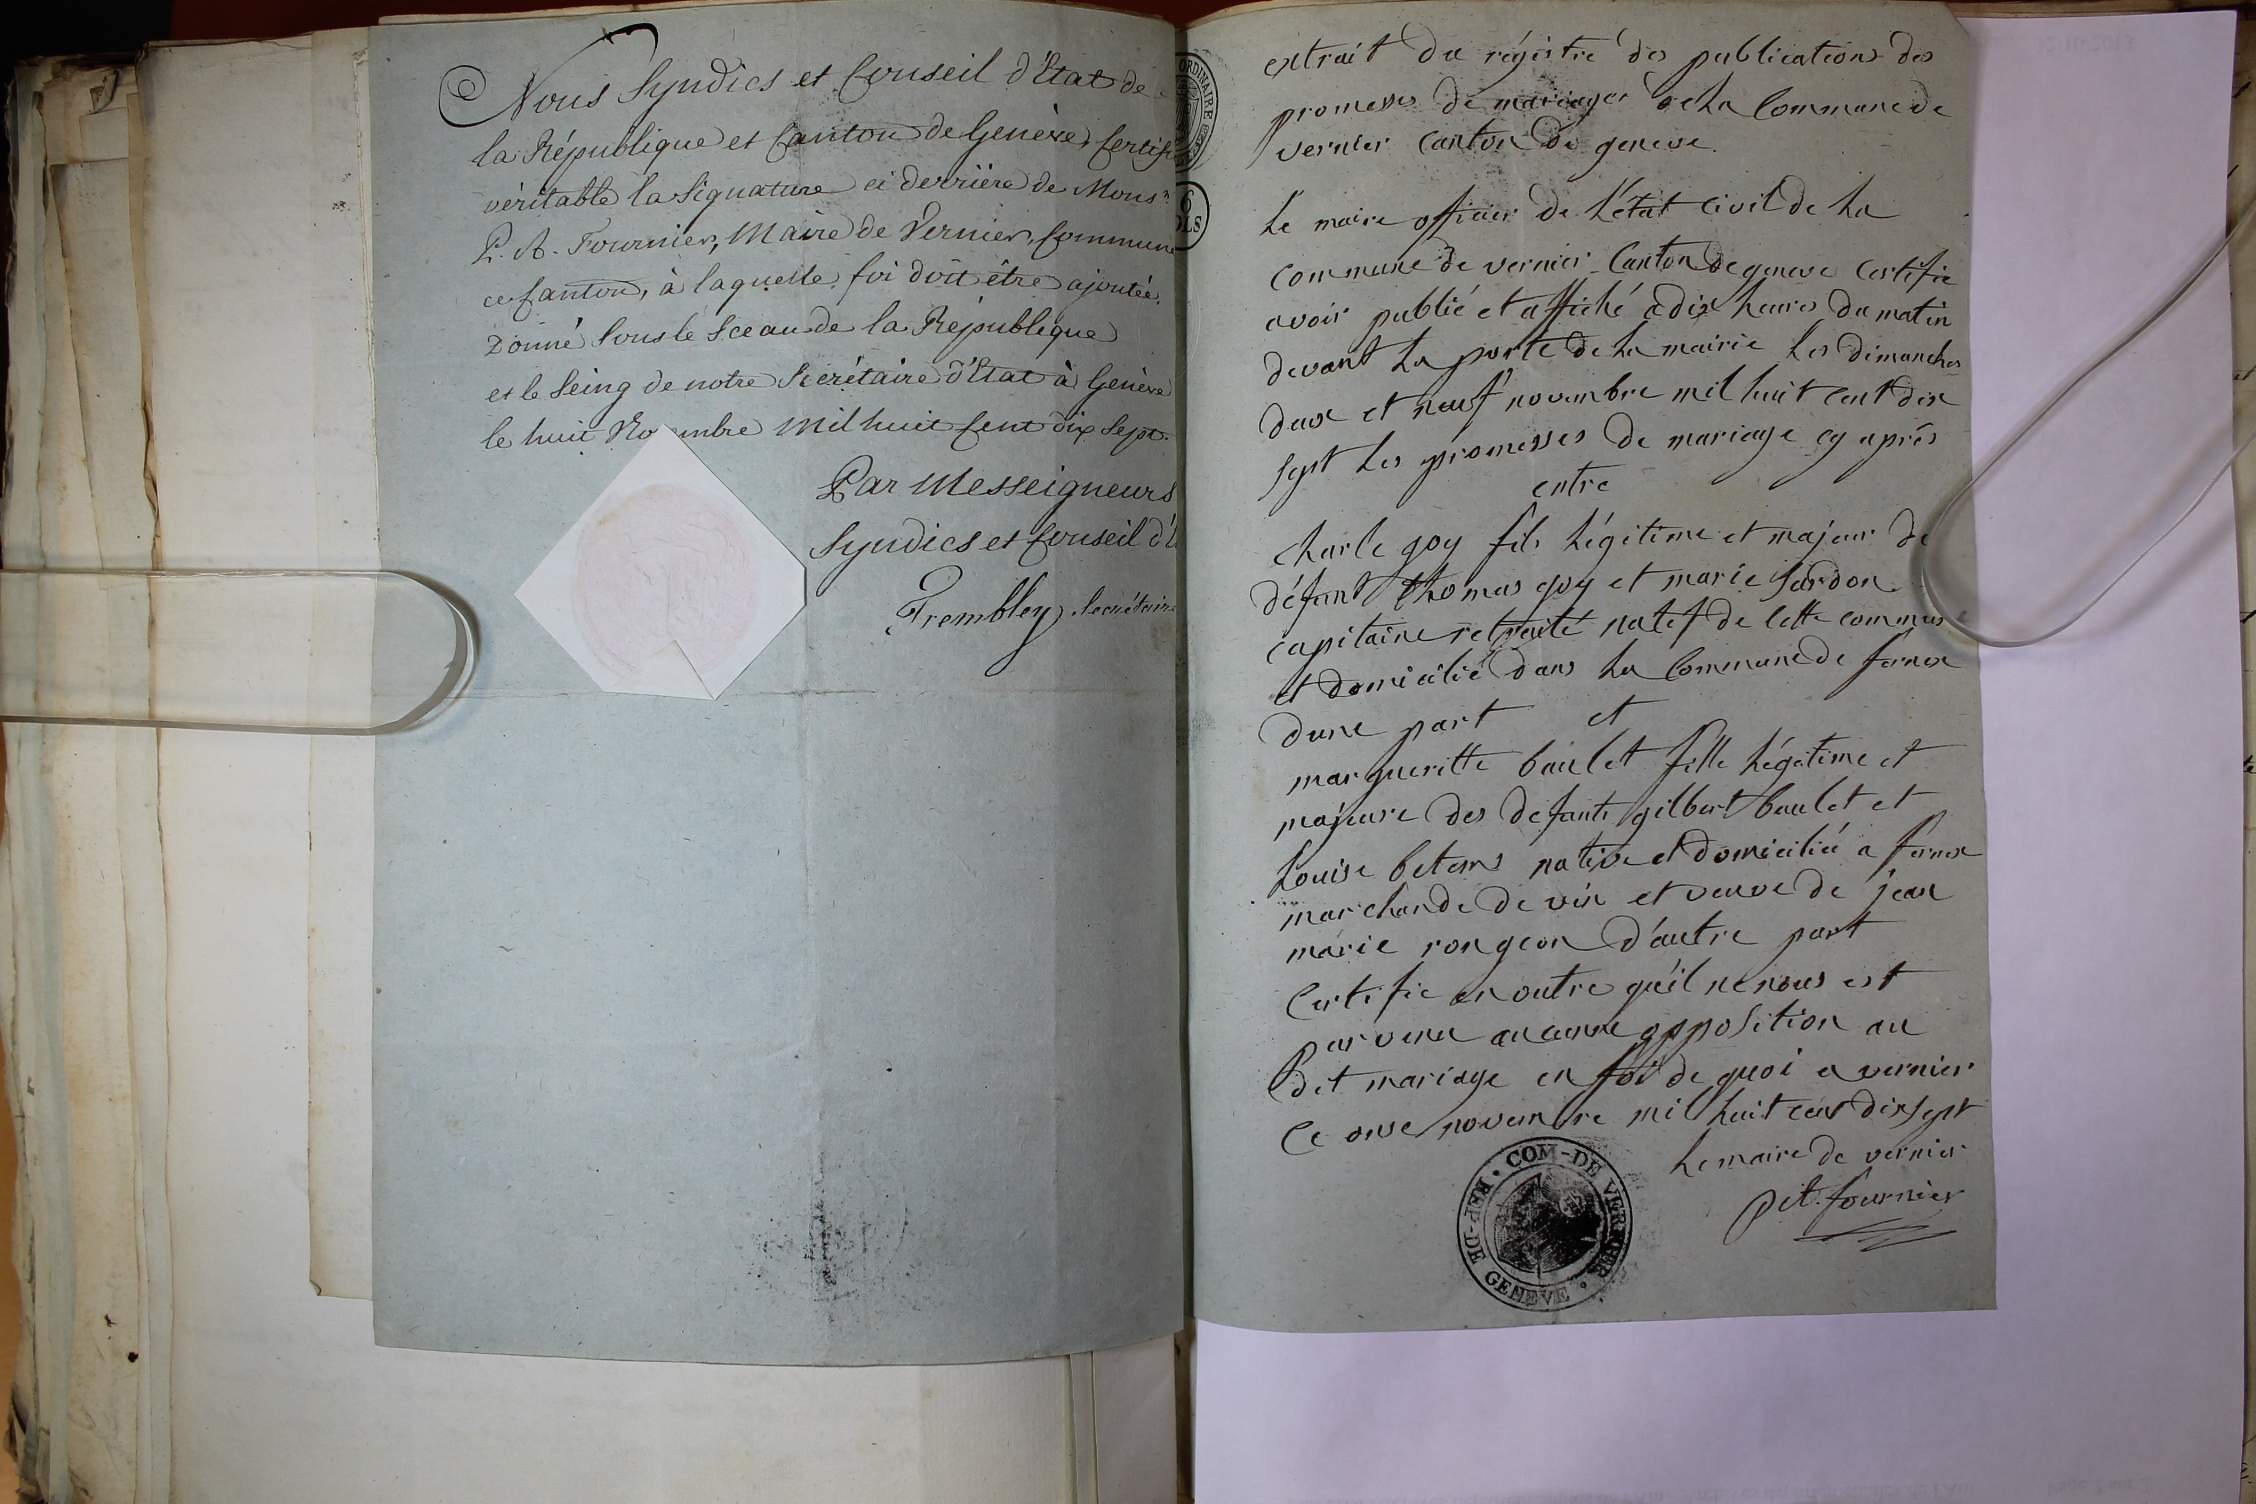 Nous Syndics et Conseil d'Etat de
la République et Canton de Genève, Certif
véritable la Signature ci derrière de Monsr.
P. A. Fournier, Maire de Vernier, Commune
ce Canton, à laquelle foi doit être ajoutée.
Donné sous le Sceau de la République
et le Seing de notre Secrétaire d'Etat à Genève
le huit Novembre mil huit Cent dix Sept.
Par Messeigneurs
Syndics et Conseil d'E
Trembley, Secrétaire
ORDINAIRE
6
OLS
extrait du régistre des publications des
promesses de mariages de la Commune de
vernier Canton de geneve.
Le maire officier de L'état civil de La
commune de vernier Canton de geneve Certifie
avoir publié et affiché a dix heures du matin
devant La porte de La mairie Les dimanches
deux et neuf novembre mil huit cent dix
sept Les promesses de mariage cy après
entre
charle goy fils Légitime et majeur de
défunt thomas goy et marie
capitaine retraité natif de Cette commune
et domicilié dans La Commune de fernex
dune part et
margueritte baulet fille Légitime et
majeure des defunts gilbert baulet et
Louise betems native et domiciliée a fernex
marchande de vin et veuve de jean
marie rongeon d'autre part
Certifie en outre qu'il ne nous est
parvenu aucune opposition au
dit mariage en foi de quoi a vernier
Ce onse novembre mil huit cent dix sept
Le maire de vernier
fournier
COM-DE VERNIER
REP-DE GENEVE